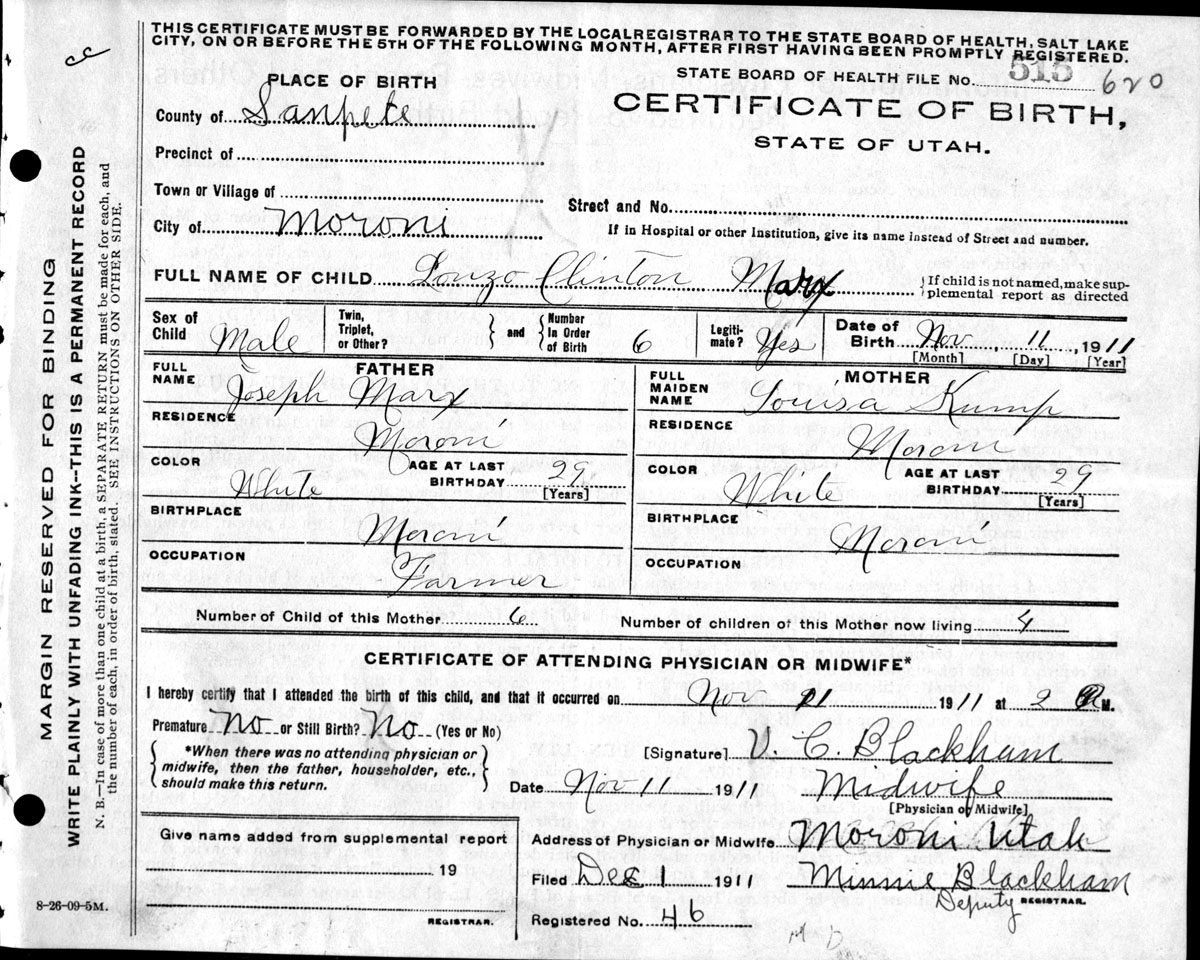 THIS CERTIFICATE MUST BE FORWARDED BY THE LOCALREGISTRAR TO THE STATE BOARD OF HEALTH, SALT LAKE
CITY, ON OR BEFORE THE 5TH OF THE FOLLOWING MONTH, AFTER FIRST HAVING BEEN PROMPTLY REGISTERED.
PLACE OF BIRTH
STATE BOARD OF HEALTH FILE No. 515 620
County of Sanpete
CERTIFICATE OF BIRTH,
STATE OF UTAH.
Precinct of
Town or Village of
Street and No.
City of Moroni
If in Hospital or other Institution, give its name instead of Street and number.
FULL NAME OF CHILD Lonzo Clinton Marx {If child is not named, make sup-
plemental report as directed
Sex of Child Male Twin, Triplet, or Other? } and { Number In Order of Birth 6 Legiti-mate? Yes Date of Birth Nov 11, 1911
[Month] [Day] [Year]
FATHER
FULL NAME Joseph Marx
RESIDENCE Moroni
COLOR White AGE AT LAST BIRTHDAY 29
[Years]
BIRTHPLACE Moroni
OCCUPATION Farmer
MOTHER
FULL MAIDEN NAME Louisa Kump
RESIDENCE Moroni
COLOR White AGE AT LAST BIRTHDAY 29
[Years]
BIRTHPLACE Moroni
OCCUPATION
Number of Child of this Mother 6 Number of children of this Mother now living 4
CERTIFICATE OF ATTENDING PHYSICIAN OR MIDWIFE*
I hereby certify that I attended the birth of this child, and that it occurred on Nov 11 1911 at 2 M.
Premature No or Still Birth? No (Yes or No)
{ *When there was no attending physician or
midwife, then the father, householder, etc.,
should make this return. }
[Signature] V. C. Blackham
Date Nov 11 1911 Midwife
[Physician or Midwife]
Give name added from supplemental report
19
REGISTRAR.
Address of Physician or Midwife Moroni Utah
Filed Dec 1 1911 Minnie Blackham
Deputy REGISTRAR.
Registered No. 46
M D
8-26-09-5M.
MARGIN RESERVED FOR BINDING
WRITE PLAINLY WITH UNFADING INK--THIS IS A PERMANENT RECORD
N. B.—In case of more than one child at a birth, a SEPARATE RETURN must be made for each, and
the number of each, in order of birth, stated. SEE INSTRUCTIONS ON OTHER SIDE.